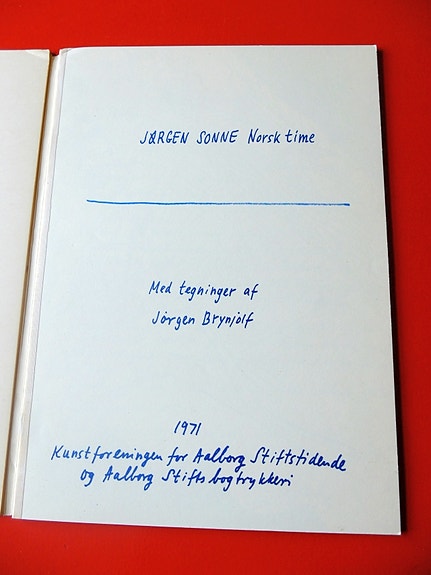 JØRGEN SONNE Norsk time
Med tegninger af
Jørgen Brynjolf
1971
Kunstforeningen for Aalborg Stiftstidende
og Aalborg Stiftsbogtrykkeri